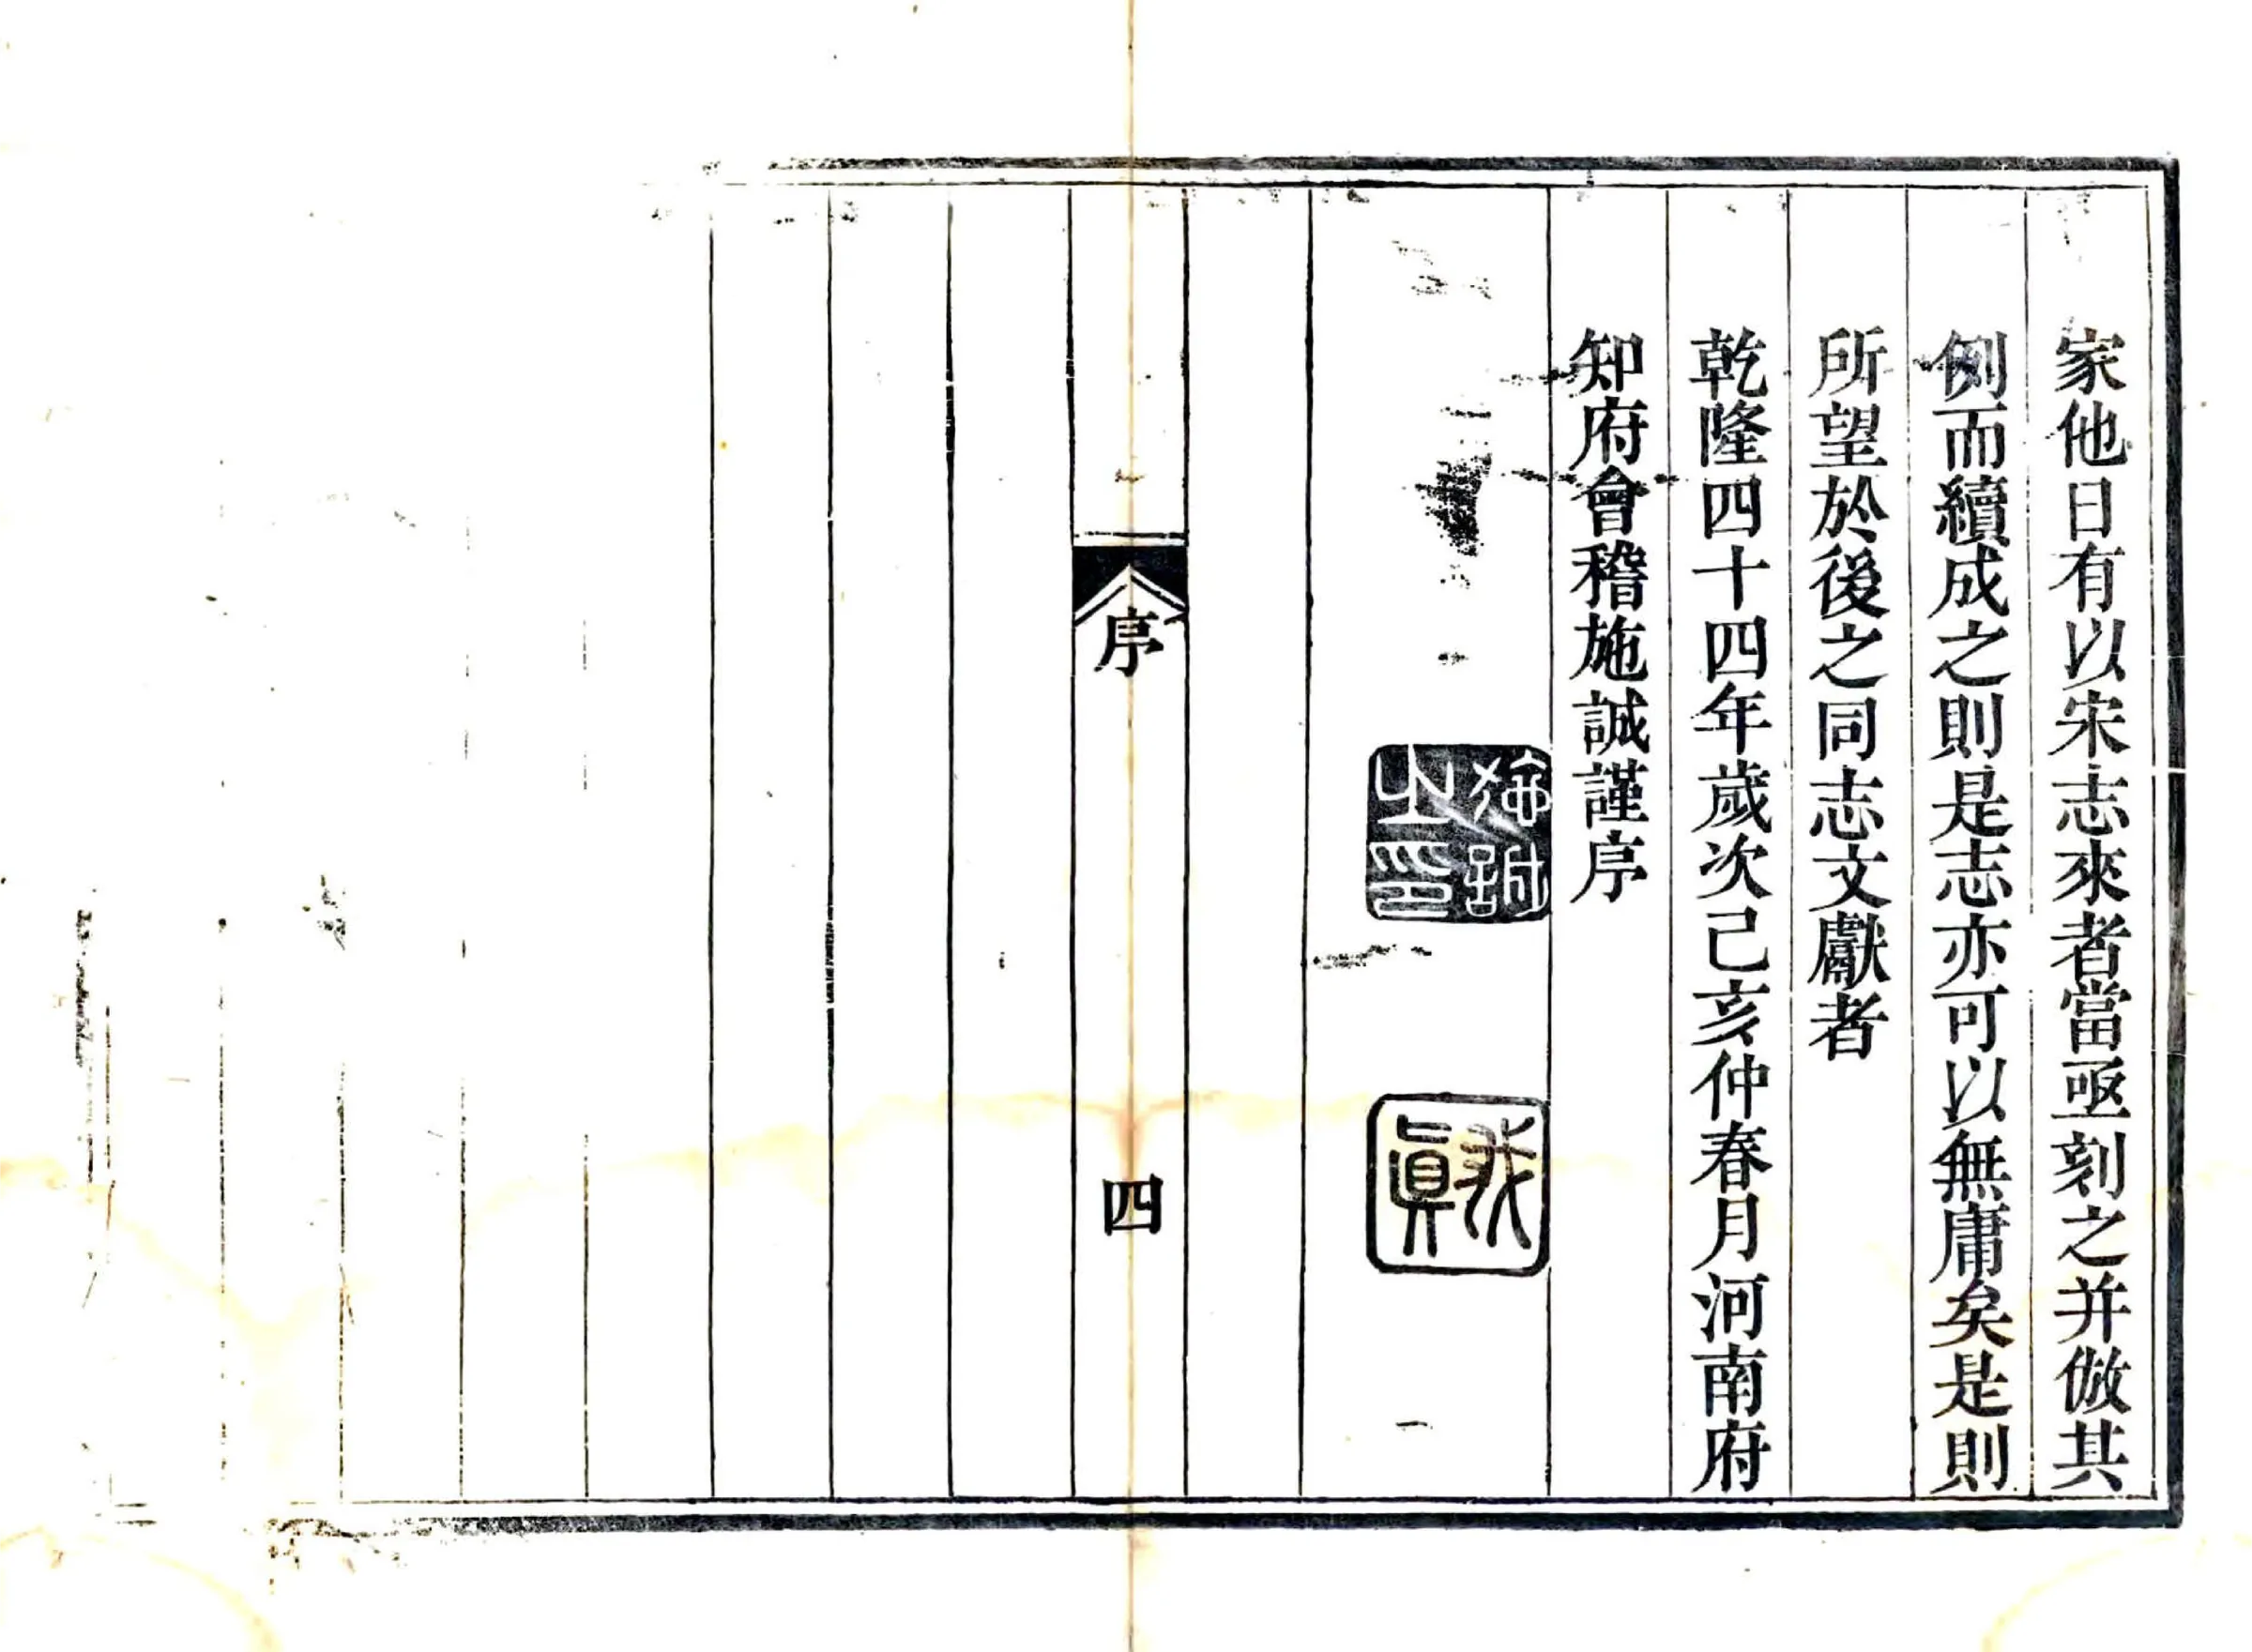 家他日有以宋志來者當亟刻之并倣其
例而續成之則是志亦可以無庸矣是則
所望於後之同志文獻者
乾隆四十四年歲次己亥仲春月河南府
知府會稽施誠謹序
施誠之印
我真
序
四